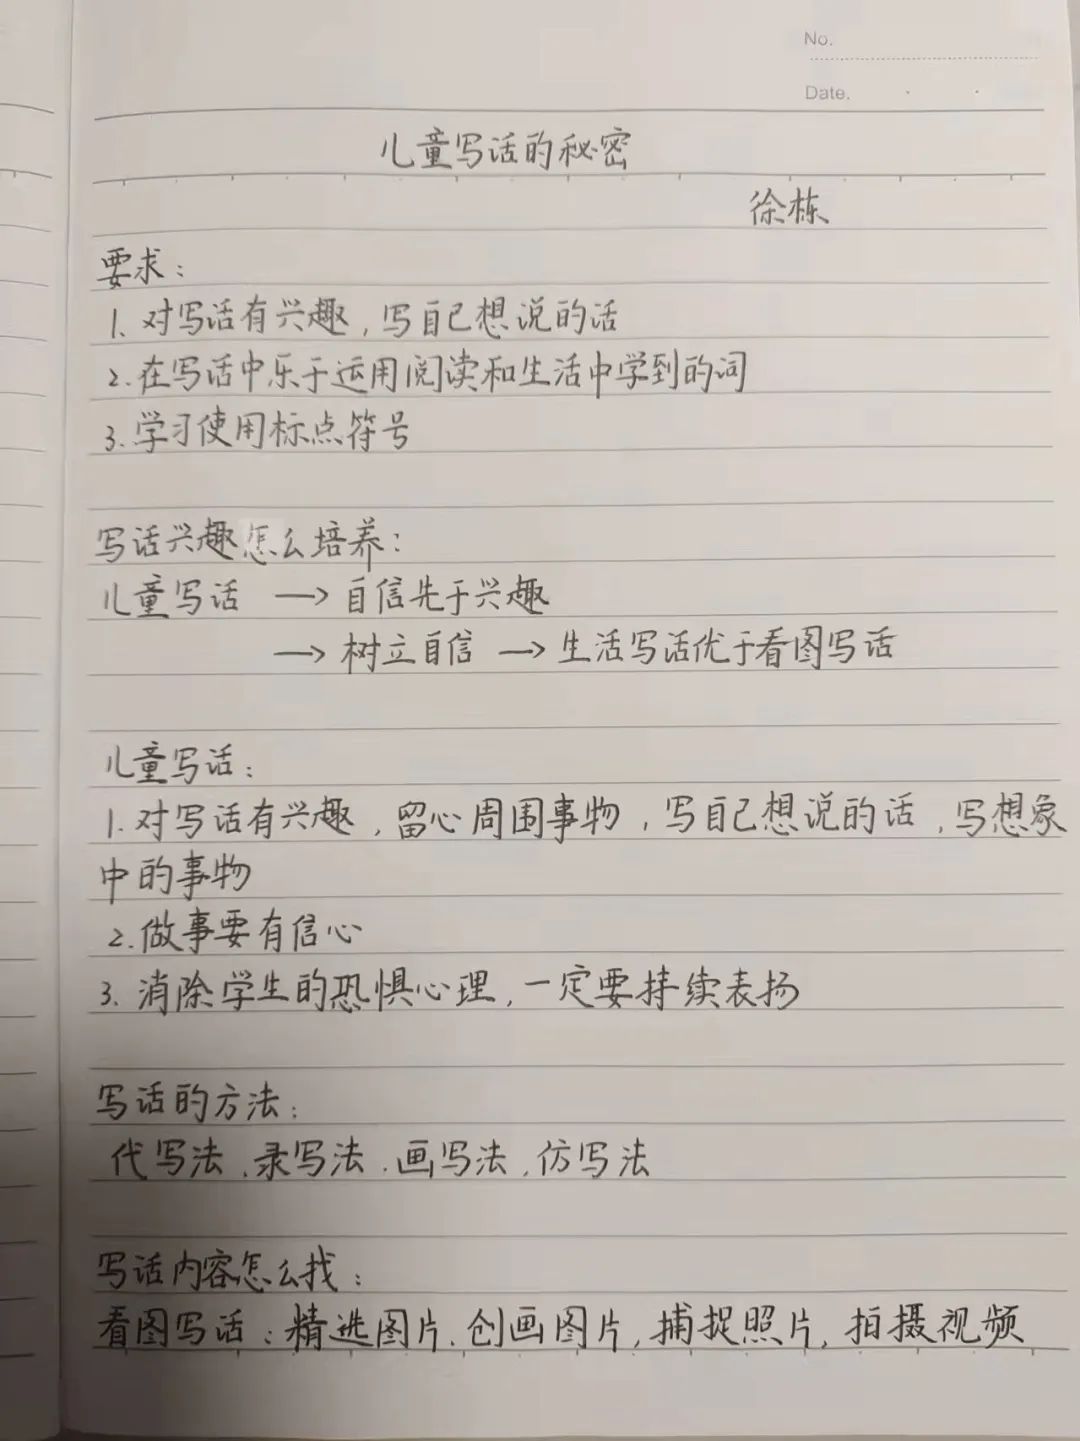 No.
Date.
儿童写话的秘密
徐栋
要求：
1. 对写话有兴趣，写自己想说的话
2. 在写话中乐于运用阅读和生活中学到的词
3. 学习使用标点符号
写话兴趣怎么培养：
儿童写话 → 自信先于兴趣
→ 树立自信 → 生活写话优于看图写话
儿童写话：
1. 对写话有兴趣，留心周围事物，写自己想说的话，写想象
中的事物
2. 做事要有信心
3. 消除学生的恐惧心理，一定要持续表扬
写话的方法：
代写法、录写法、画写法，仿写法
写话内容怎么找：
看图写话：精选图片、创画图片，捕捉照片，拍摄视频